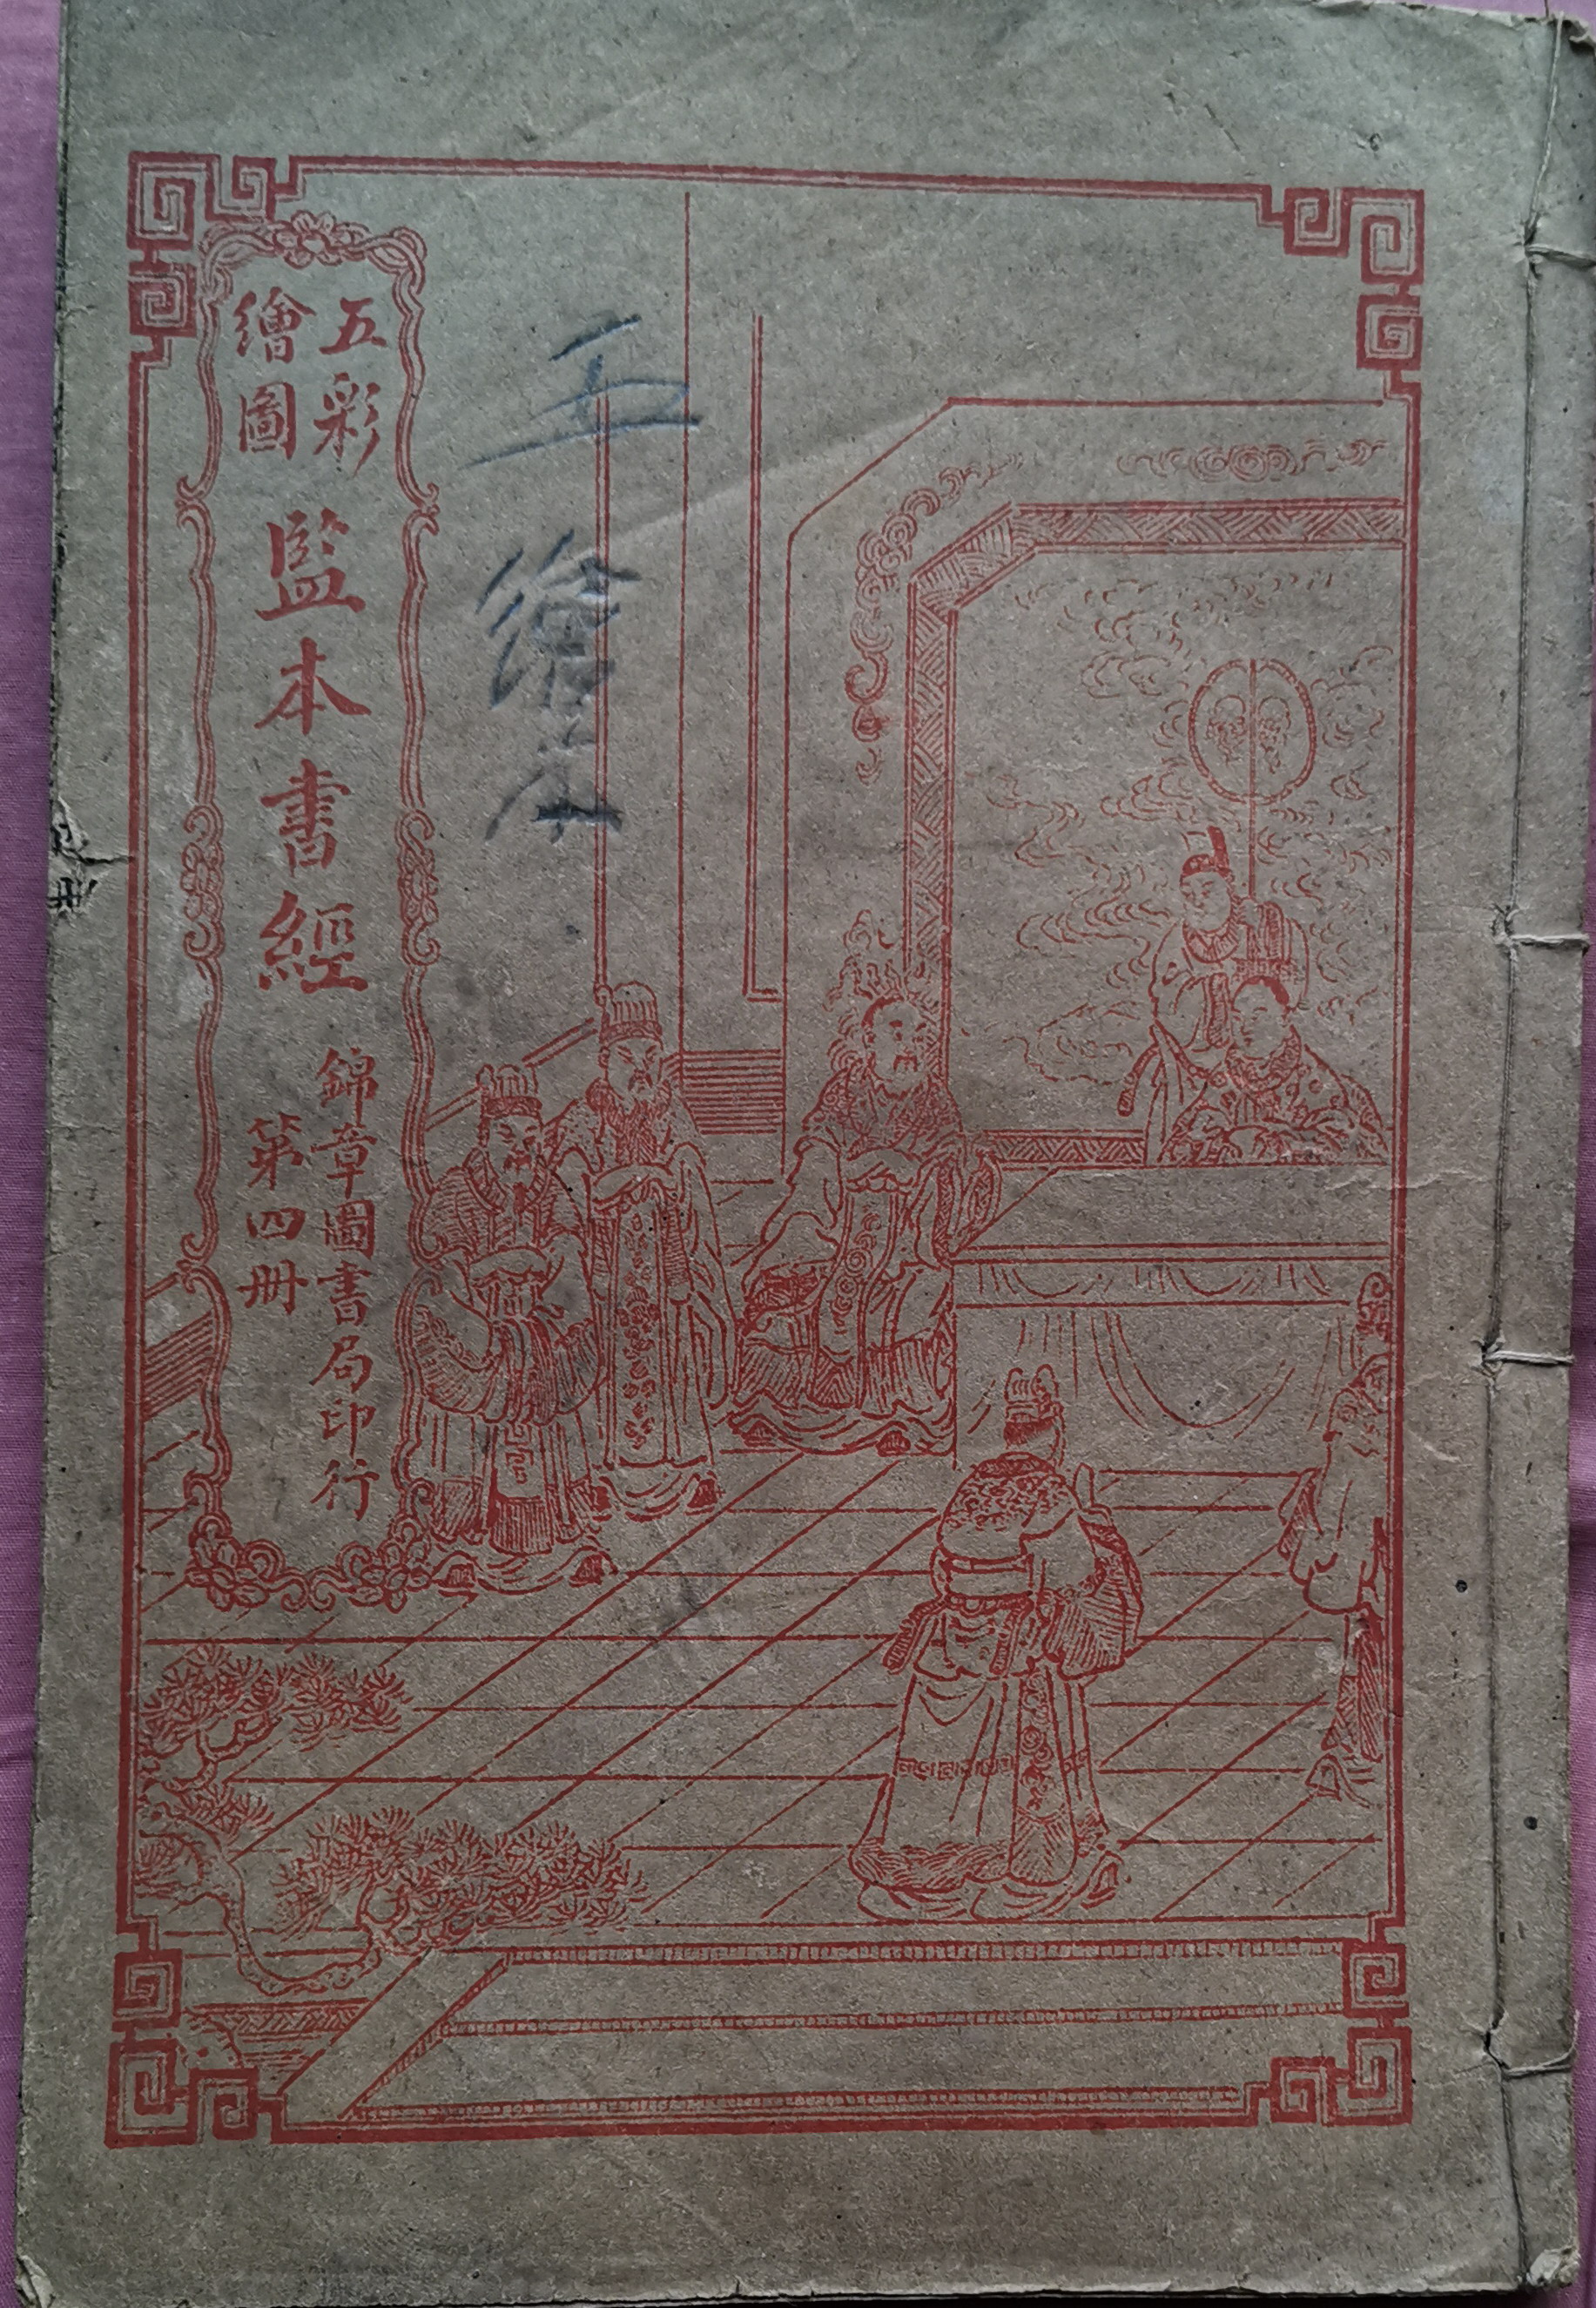 五彩
繪圖
監本書經
錦章圖書局印行
第四冊
王